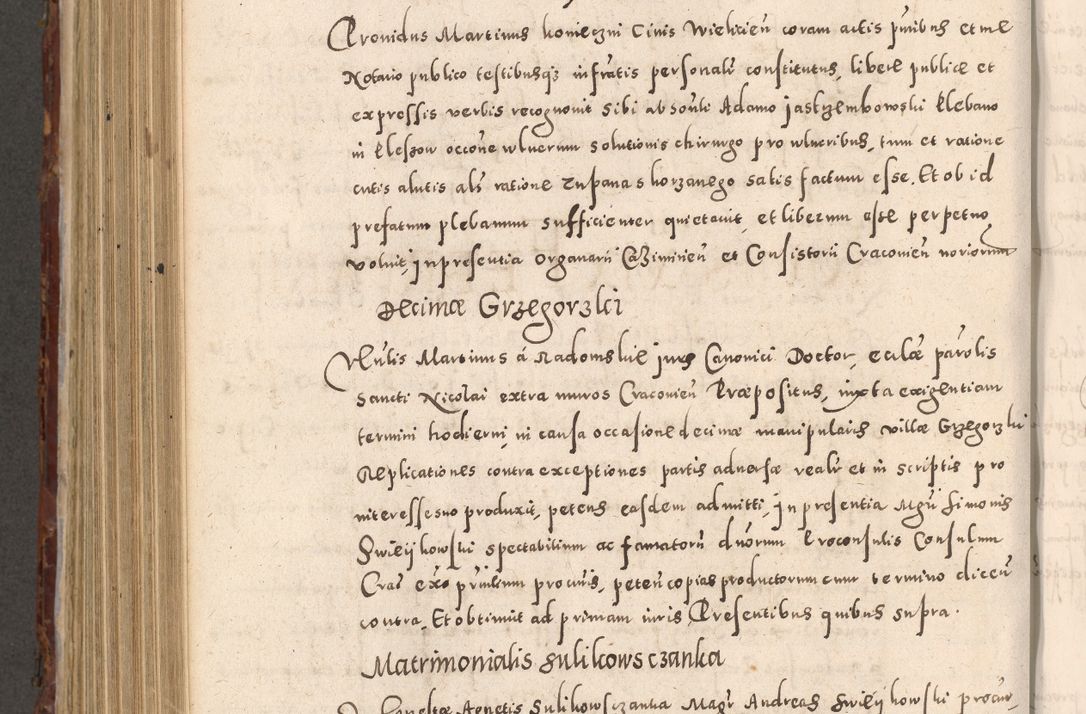 Providus Martinus konieczni Civis Wielicien̄ coram actis pn̄tibus et me
Notario publico testibusq; infratis personalr̄ constitutus, libere publice et
expressis verbis recognovit Sibi ab honli Adamo Jastrzembowski Plebano
in Pleszow occone vulnerum solutionis chirurgo pro vulneribus, tum et ratione
cutis alutis als ratione zupana skorzanego satis factum esse. Et ob id
prefatum plebanum sufficienter quietavit, et liberum esse perpetuo
voluit, in presentia Organarii Cazimirien̄ et Consistorii Cracovien̄ notiorum
Decimæ Grzegorzki
Vnlis Martinus á Radomskie juris Canonici Doctor, ecclæ parolis
Sancti Nicolai extra muros Cracovien̄ Præpositus, iuxta exigentiam
termini hodierni, in causa occasione decimæ manipularis villæ Grzegorzki
Replicationes contra exceptiones partis adversæ realr̄ et in scriptis pro
interesse suo produxit, petens easdem admitti, in presentia Mgri Simonis
Swieykowski spectabilium ac famatorū duorum Proconsulis Consulum
Crac̄ ex̄o principalium procuris, peten̄ copias productorum cum termino dicen̄
contra. Et obtinuit ad primam iuris, Presentibus quibus supra.
Matrimonialis Sulikowsczanka
Honesta Agnetis Sulikowsczanka Magr̄ Andreas Swieykowski procur,